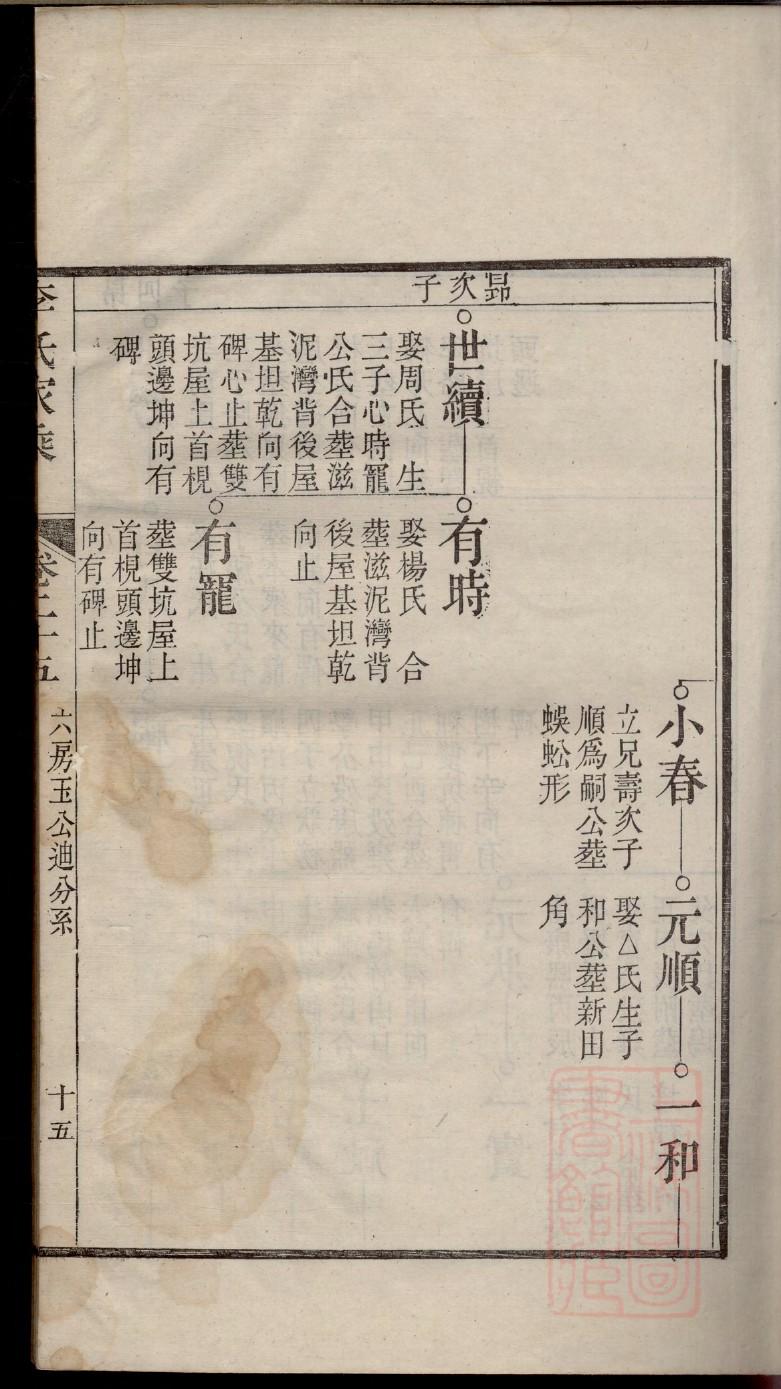 小春
立兄壽次子
順爲嗣公塟
蜈蚣形
元順
娶△氏生子
和公塟新田
角
一和
昻次子
世續
娶周氏 生
三子心時寵
公氏合塟滋
泥灣背後屋
基坦乾向有
碑心止塟雙
坑屋上首梘
頭邊坤向有
碑
有時
娶楊氏 合
塟滋泥灣背
後屋基坦乾
向止
有寵
塟雙坑屋上
首梘頭邊坤
向有碑止
李氏家乘
卷二十五
六房玉公迪分系
十五